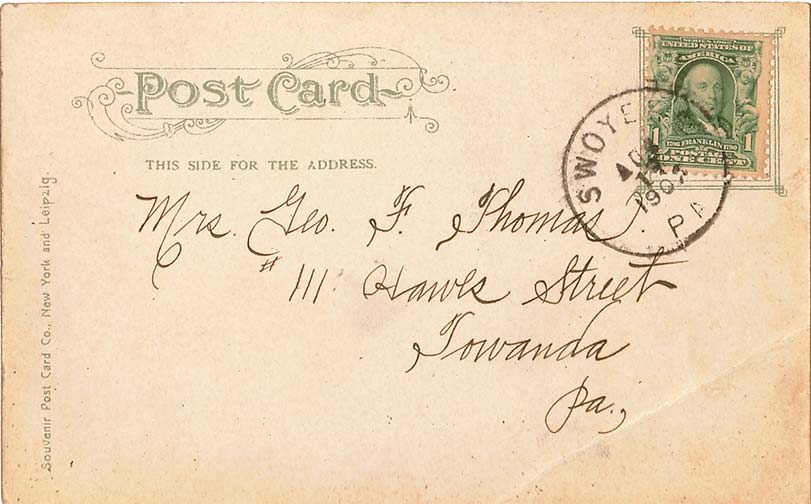 Post Card
THIS SIDE FOR THE ADDRESS.
SERIES 1902
UNITED STATES OF
AMERICA
1 1
1706 FRANKLIN 1790
POSTAGE
ONE CENT
SWOYE
1907
PA
Mrs. Geo. F. Thomas.
# 111 Hawes Street
Towanda
Pa.,
Souvenir Post Card Co., New York and Leipzig.